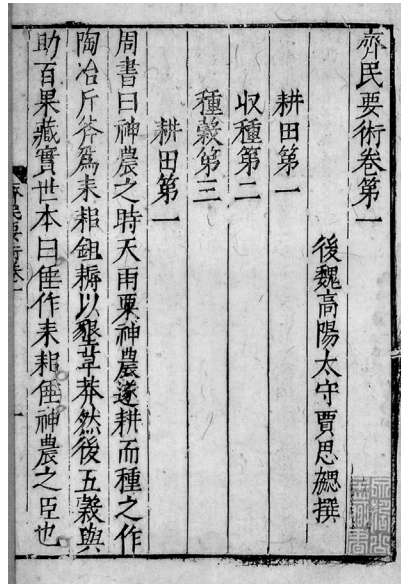 齊民要術卷第一
後魏高陽太守賈思勰撰
耕田第一
収種第二
種糓第三
耕田第一
周書曰神農之時天雨粟神農遂耕而種之作
陶冶斤斧爲耒耜鉏耨以墾草莽然後五糓與
助百果藏實世本曰倕作耒耜倕神農之臣也
齊民要術卷一
一